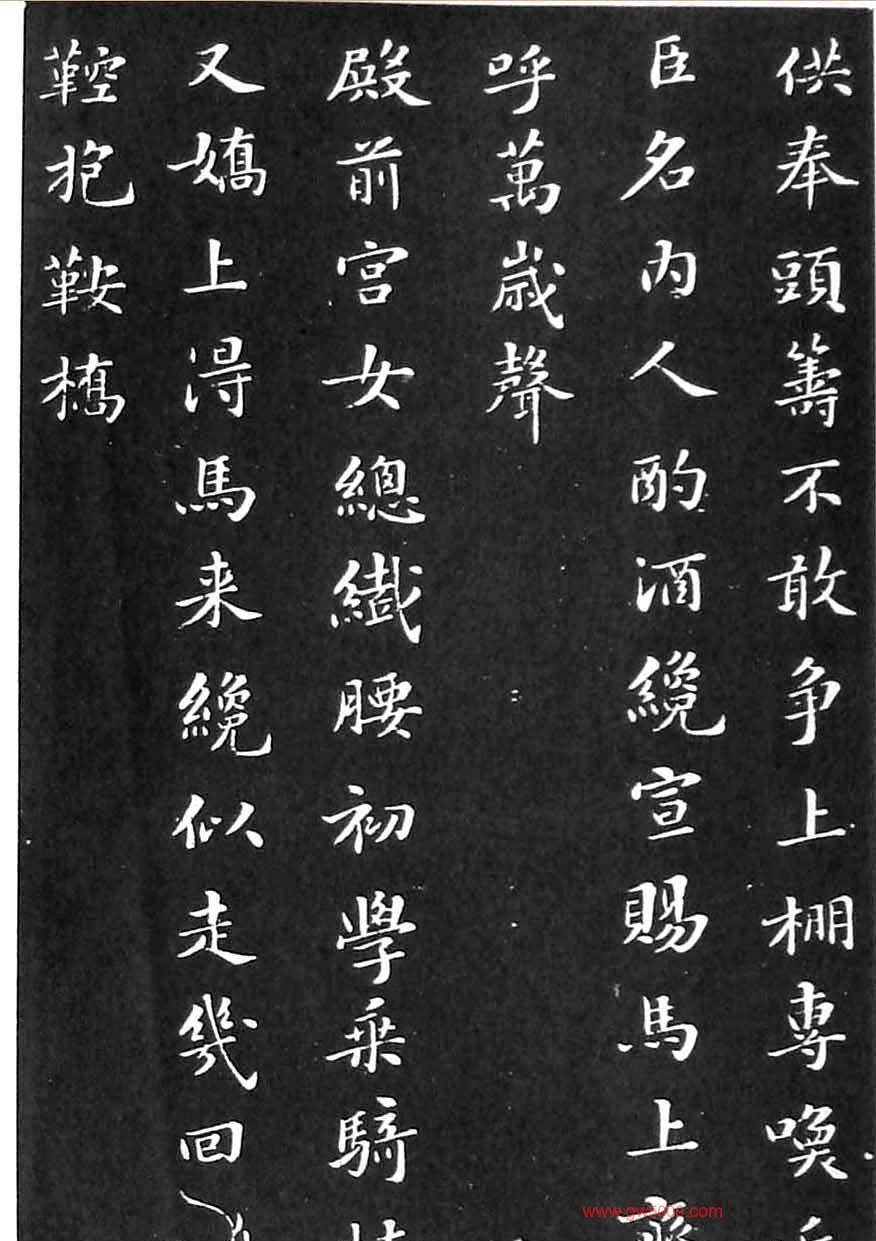 供奉頭籌不敢争上棚専喚
臣名内人酌酒纔宣賜馬上齊
呼萬歲聲
殿前宫女總纖腰初學乗騎
又嬌上得馬来纔似走幾回
鞚抱鞍橋
www.gw5000.com